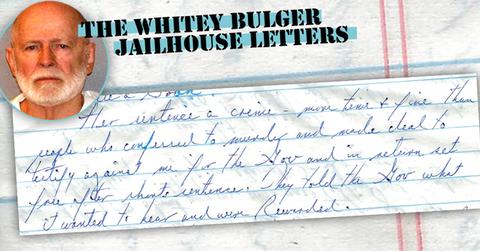 THE WHITEY BULGER
JAILHOUSE LETTERS
Her sentence a crime - more time & fine than
people who confessed to murder and made deal to
testify against me for the Gov and in return set
free after short sentence. They told the Gov what
it wanted to hear and were Rewarded.